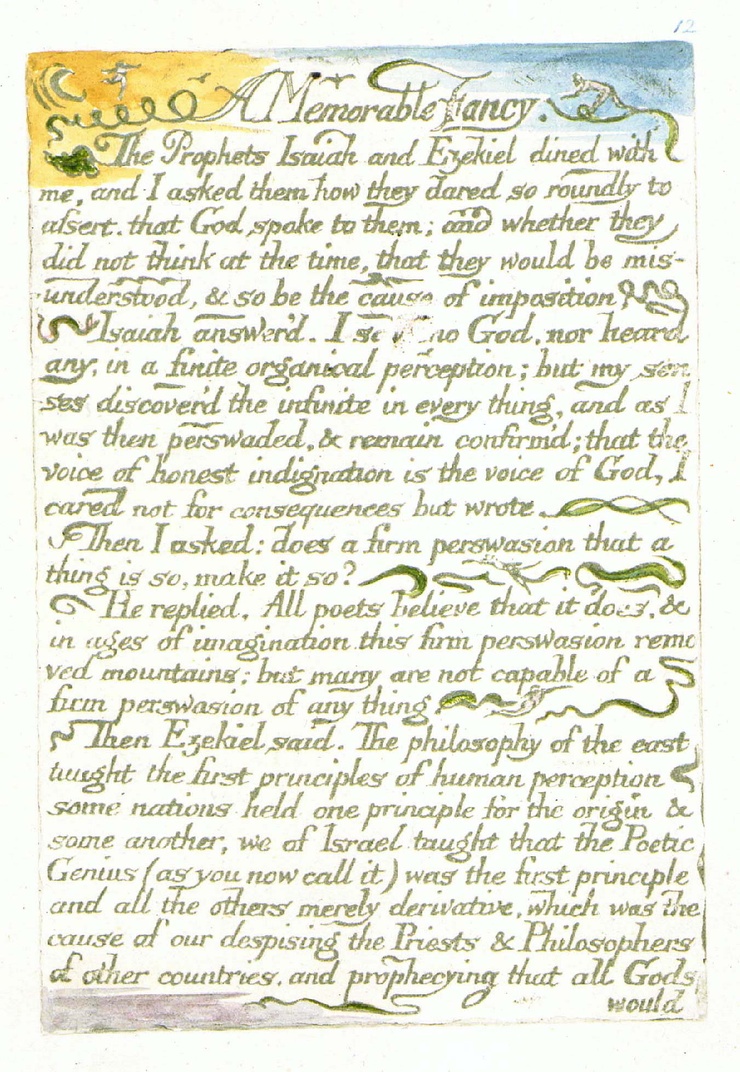 12
A Memorable Fancy.
The Prophets Isaiah and Ezekiel dined with
me, and I asked them how they dared so roundly to
assert. that God spoke to them; and whether they
did not think at the time, that they would be mis-
understood, & so be the cause of imposition
Isaiah answer'd. I no God, nor heard
any, in a finite organical perception; but my sen
ses discover'd the infinite in every thing, and as I
was then perswaded, & remain confirm'd; that the
voice of honest indignation is the voice of God, I
cared not for consequences but wrote.
Then I asked: does a firm perswasion that a
thing is so, make it so?
He replied. All poets believe that it does, &
in ages of imagination this firm perswasion remo
ved mountains; but many are not capable of a
firm perswasion of any thing
Then Ezekiel said. The philosophy of the east
taught the first principles of human perception
some nations held one principle for the origin &
some another, we of Israel taught that the Poetic
Genius (as you now call it) was the first principle
and all the others merely derivative, which was the
cause of our despising the Priests & Philosophers
of other countries, and prophecying that all Gods
would